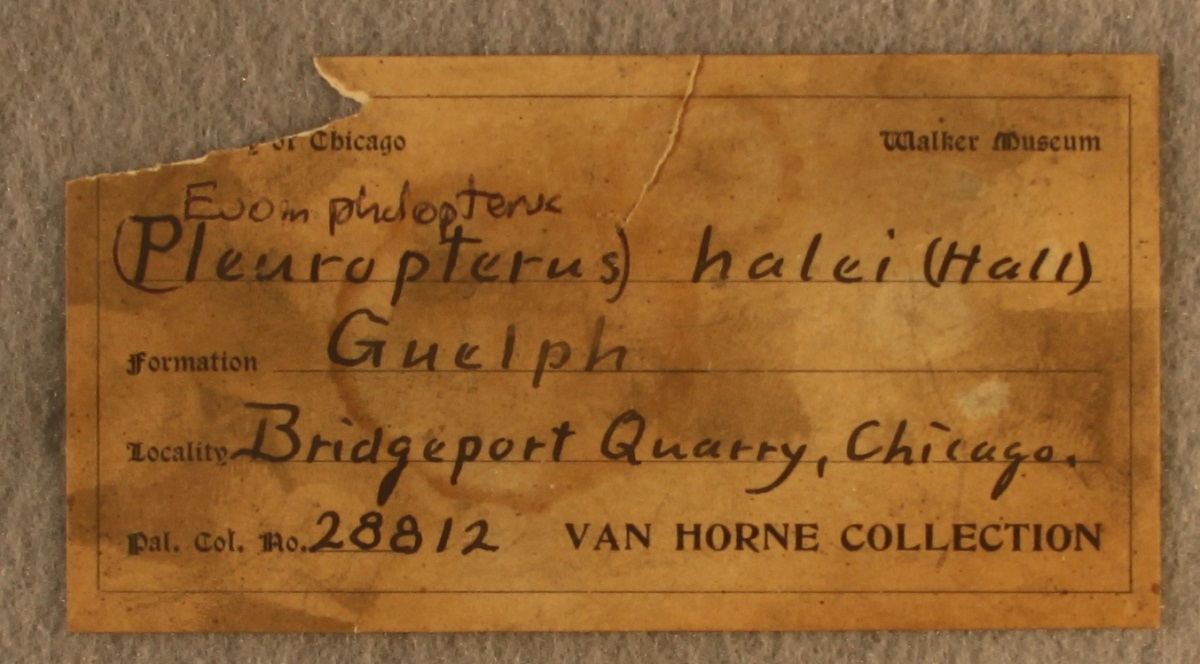 y of Chicago Walker Museum
Euomphalopterus
(Pleuropterus) halei (Hall)
Formation Guelph
Locality Bridgeport Quarry, Chicago.
Pal. Col. No. 28812 VAN HORNE COLLECTION